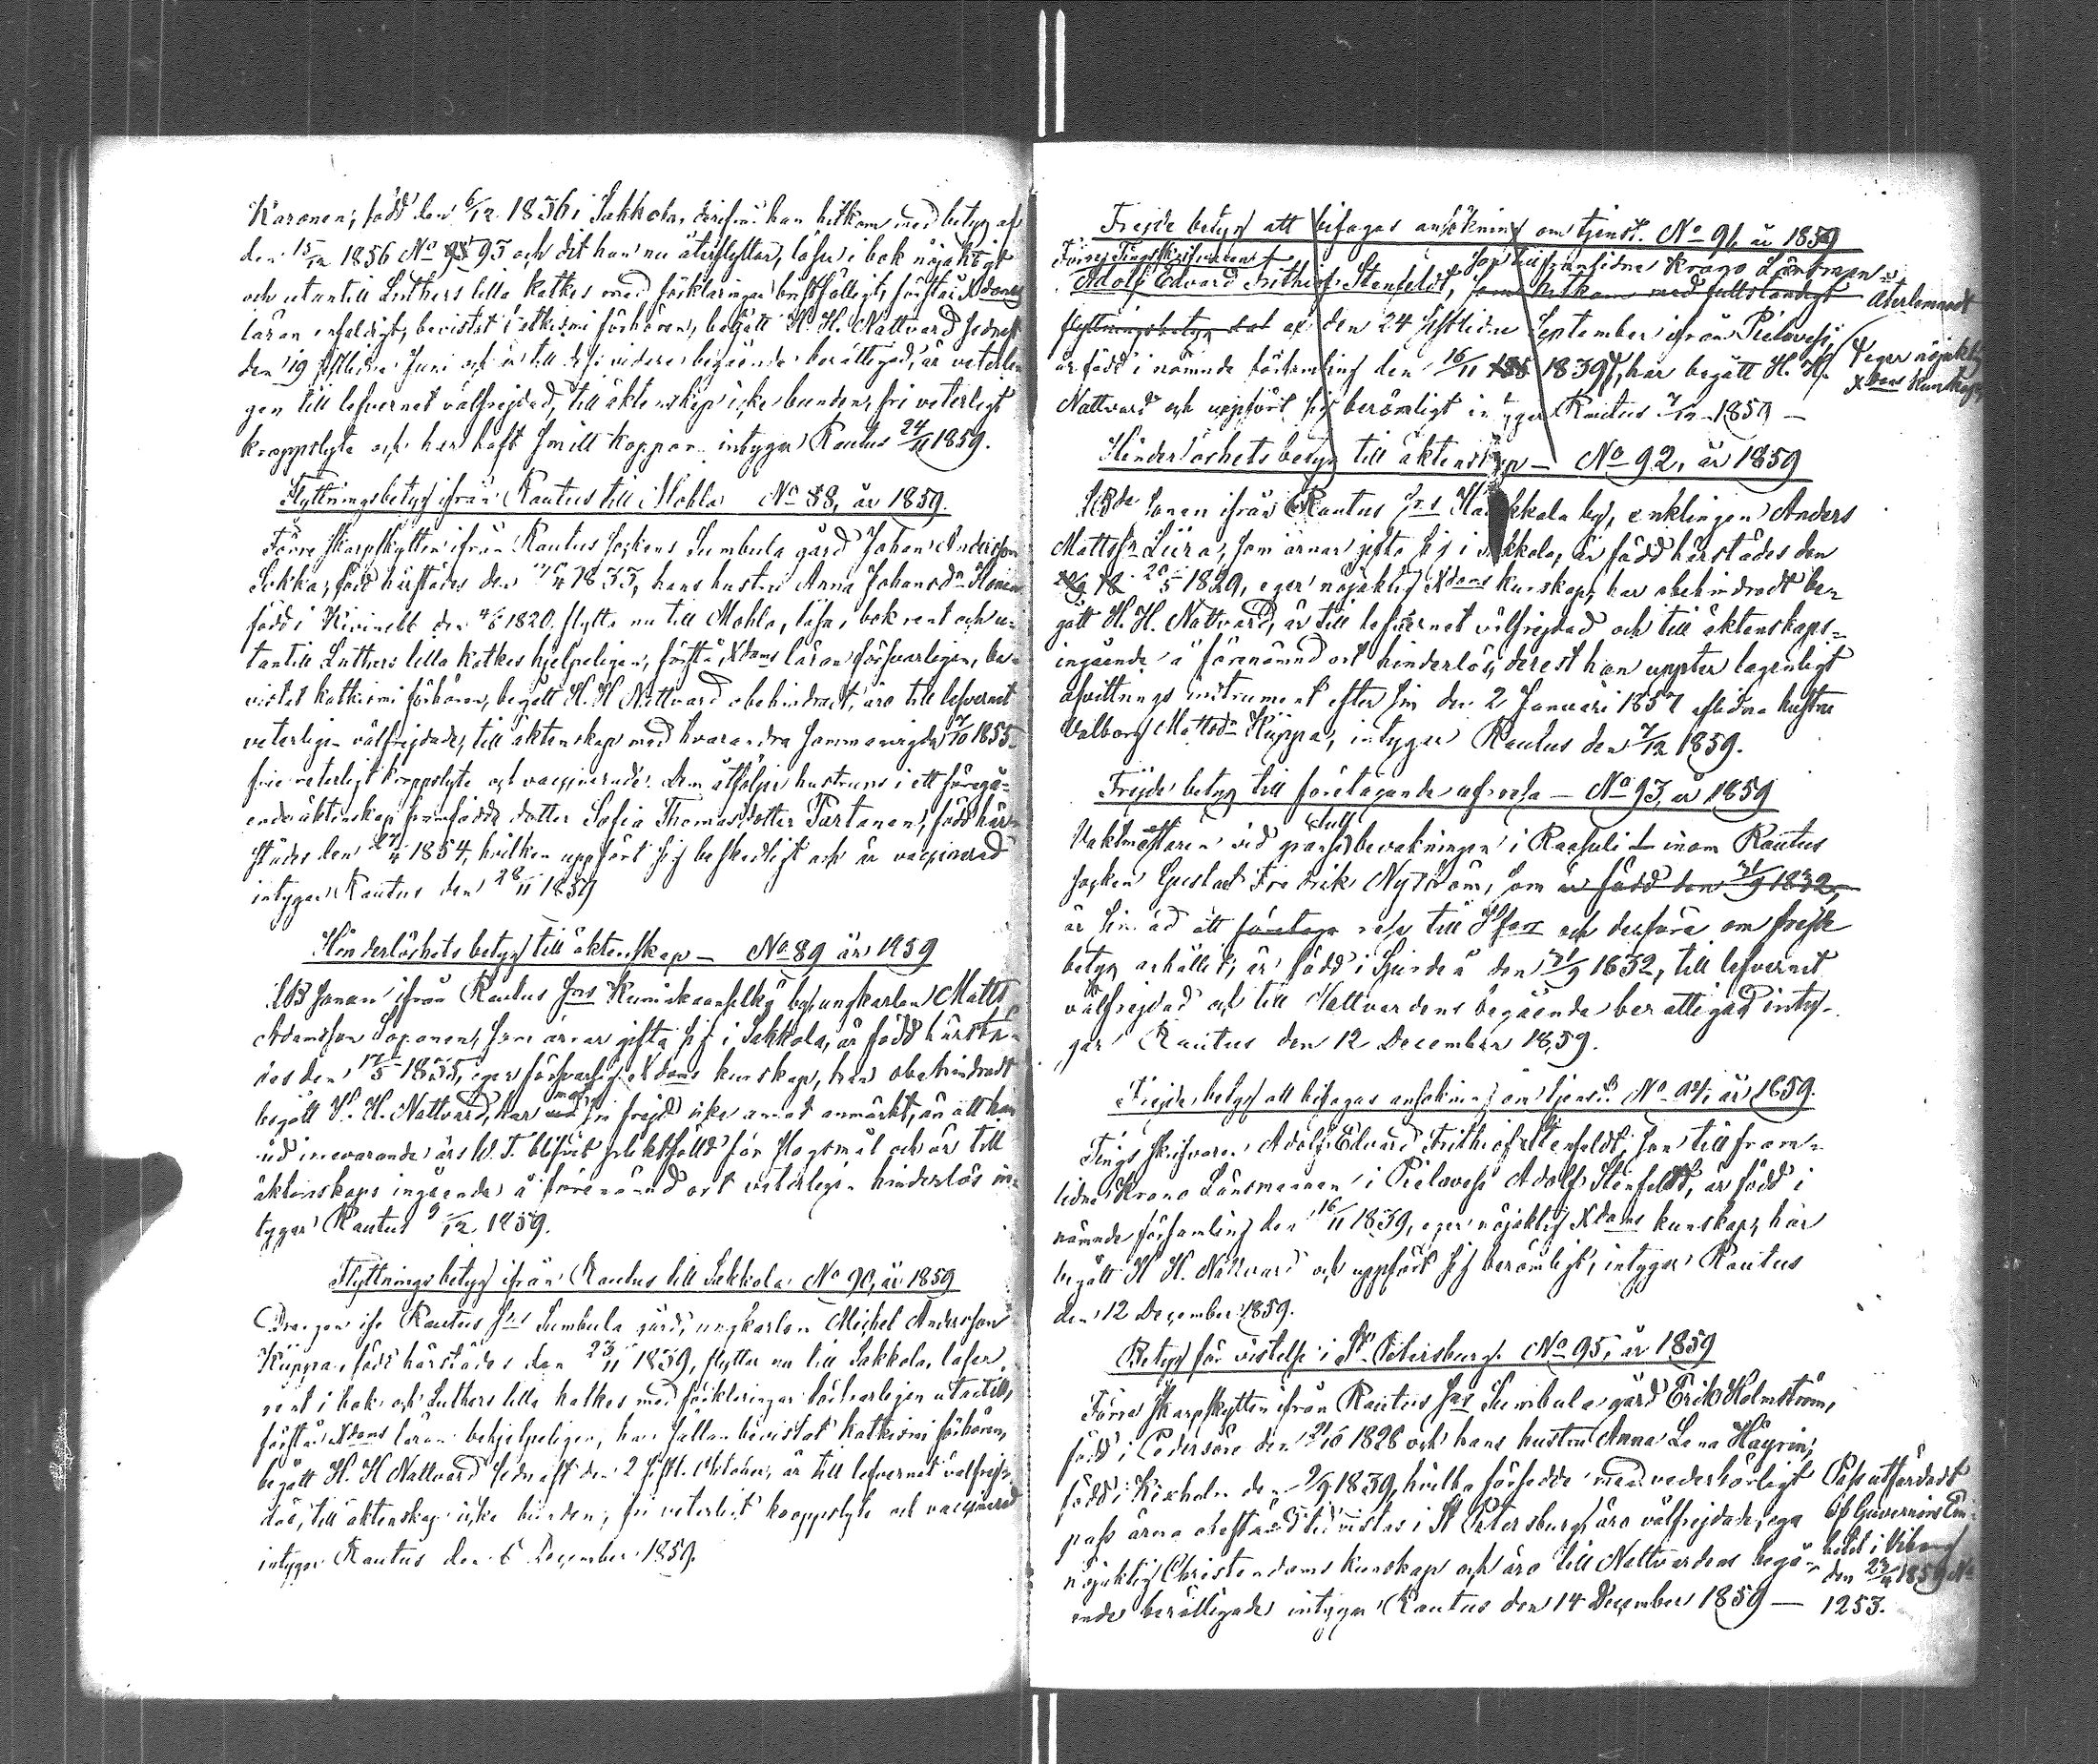 Karonen, född den 6/12 1836 i Sakkola, derifrån han hitkom med betyg af
den 15/12 1856 No 93 och dit han nu återflyttar, läser i bok nöjaktigt
och utantill Luthers lilla katkes med förklaringar bristfälligt, förstår Xdoms
läran enfaldigt, bevistat katkismi förhören, begått H. H. Nattvard sednast
den 19 sistlidne Juni och är till dess vidare begående berättigad, är veterli
gen till lefvernet välfrejdad, till äktenskap icke bunden, fri veterligt
kroppslyte och har haft smitt koppor intygar Rautus 24/11 1859.
Flyttningsbetyg ifrån Rautus till Mohla No 88, år 1859.
Förre Skarpskytten ifrån Rautus sockens Sumbula gård Johan Andersson
Sokka, född härstädes den 1833, hans hustru Anna Johansdr
född i Kivinebb den 4/6 1820. flytta nu till Mohla, läsa i bok rent och u-
tantill Luthers lilla katkes hjelpeligen, förstå Xdoms läran försvarligen, be-
vistat katkismi förhören, begått H. H Nattvard obehindradt, äro till lefvernet
veterligen välfrejdade, till äktenskap med hvarandra sammanvigde 1855.
frie veterligt kroppslyte och vaccinerade. Dem åtföljer hustruns i ett föregå-
ende äktenskap framfödde dotter Sofia Thomasdotter Partanen, född här-
städes den 1854, hvilken uppfört sig beskedligt och är vaccinerad
intygar Rautus den 28/11 1859
Hinderlöshets betyg till äktenskap — No 89 år 1859
LB Sonen ifrån Rautus Sns by ungkarlen Matts
Adamsson Loponen, som ärnar gifta sig i Sakkola, är född härstä-
des den 17/5 1835, eger försvarlig Xdoms kunskap, har obehindradt
begått H. H. Nattvard, har mot sin frejd icke annat anmärkt, än att han
vid innevarande års W. T. blifvit sakfälld för slagsmål och är till
äktenskaps ingående å förenämnd ort veterligen hinderlös in-
tygar Rautus 9/12 1859.
Flyttningsbetyg ifrån Rautus till Sakkola No 90, år 1859
Drengen ifr Rautus Sns Sumbula gård, ungkarlen Michel Andersson
Küppa, född härstädes den 23/11 1839, flyttar nu till Sakkola, läser
rent i bok och Luthers lilla katkes med förklaringar försvarligen utantill,
förstår Xdoms läran behjelpeligen, har sällan bevistat katkismi förhören,
begått H. H Nattvard sednast den 2 sistl. October, är till lefvernet välfrej-
dad, till äktenskap icke bunden, fri veterligt kroppslyte och vaccinerad
intygar Rautus den 6 December 1859.
Frejde betyg att bifogas ansökning om tjenst. No 91 år 1859
Förre Tingsskrifvaren son till framlidne Krono Länsman-
Adolf Edvard Frithiof Stenfeldt, som hitkom med fullständigt
flyttningsbetyg af den 24 sistlidne September ifrån Pielavesi,
är född i nämnde församling den 16/11 1839, har begått H. H.
Nattvard och uppfört sig berömligt intygar Rautus 7/12 1859 —
Återlemnadt
eger nöjaktig
Xdoms kunskap,
Hinderlöshets betyg till äktenskap — No 92, år 1859
LBde Sonen ifrån Rautus Sns by, enklingen Anders
Mattss Liira, som ärnar gifta sig i Sakkola, är född härstädes den
20/5 1829, eger nöjaktig Xdoms kunskap, har obehindradt be-
gått H. H. Nattvard, är till lefvernet välfrejdad och till äktenskaps-
ingående å förenämnd ort hinderlös, derest han uppter lagenligt
afvittrings instrument efter sin den 2 Januari 1857 aflidna hustru
Valborg Mattsdr Küppa, intygar Rautus den 7/12 1859.
Frejde betyg till företagande af resa — No 93, år 1859
Vaktmästaren vid gränstullbevakningen i Raasuli inom Rautus
socken Gustaf Fredrik Nyström, som är född den 21/9 1832,
är sinnad att företaga resa till Hfors och derföre om frejde
betyg anhållit, är född i Sjundeå den 21/9 1832, till lefvernet
välfrejdad och till Nattvardens begående berättigad inty-
gar Rautus den 12 December 1859.
Frejde betyg att bifogas ansökning om tjenst No 94, år 1859.
Tings skrifvaren Adolf Edvard Frithiof Stenfeldt, son till fram-
lidne Krono Länsmannen i Pielavesi Adolf Stenfeldt, är född i
nämnde församling den 16/11 1839, eger nöjaktig Xdoms kunskap, har
begått H H. Nattvard och uppfört sig berömligt, intygar Rautus
den 12 December 1859.
Betyg för vistelse i St Petersburg. No 95, år 1859
Förre Skarpskytten ifrån Rautus Sns Sumbula gård Erik Holmström,
född i Pedersöre den 1828 och hans hustru Anna Lena Häyrin,
född i Kexholm den 2/9 1839, hvilka försedde med vederbörligt
pass ärna en tid vistas i St Petersburg, äro välfrejdade, ega
nöjaktig Christendoms kunskap och äro till Nattvardens begå-
ende berättigade intygar Rautus den 14 December 1859 —
Pass utfärdadt
af Guvernörs Em-
betet i Viborg
den 1859 No
1253.